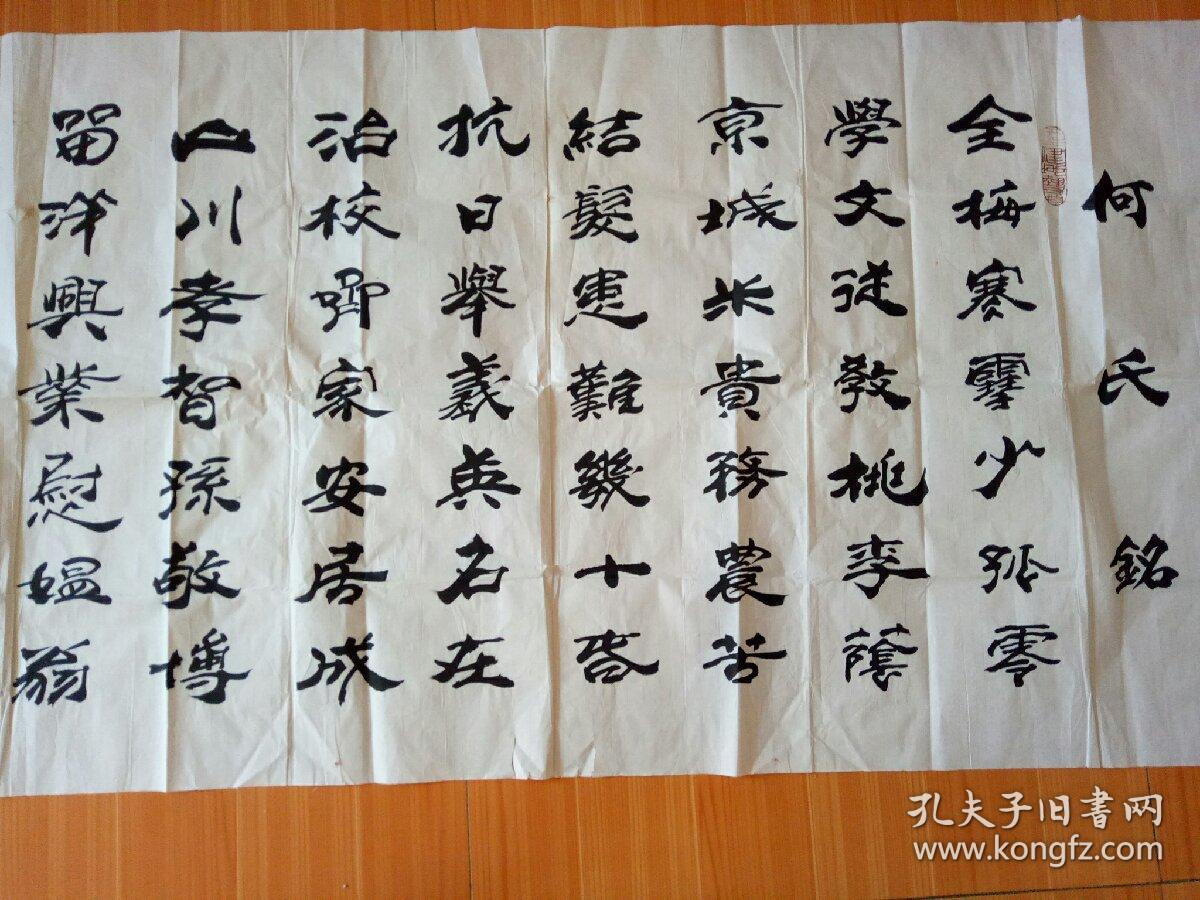 何氏銘
全梅寒霽少孤零
學文從教桃李蔭
京城米貴務農苦
結髮患難幾十春
抗日舉義兵名在
治校卿家安居成
山川孝智孫敬博
留洋興業慰媼翁
孔夫子旧书网
www.kongfz.com